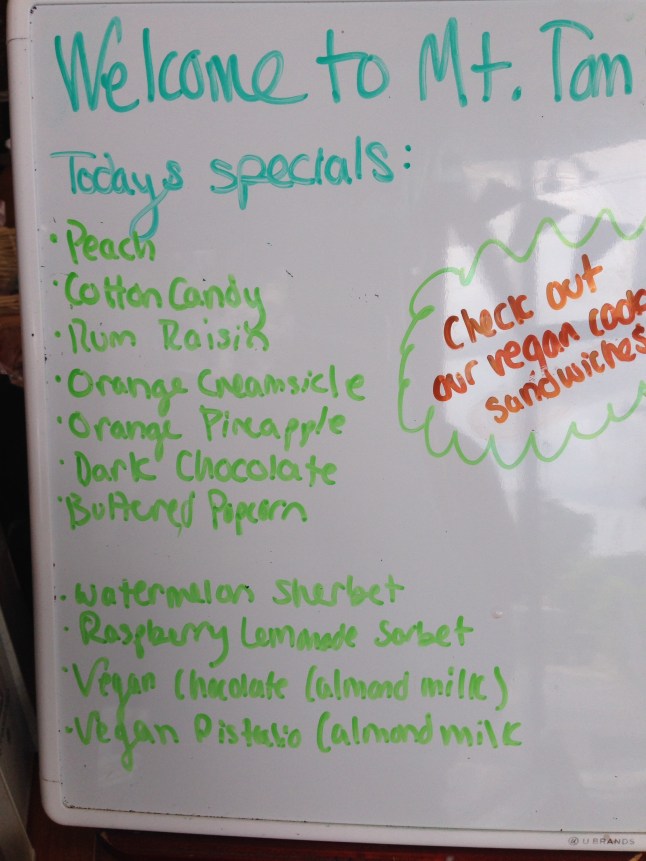 Welcome to Mt. Tom
Todays specials:
· Peach
· Cotton Candy
· Rum Raisin
· Orange Creamsicle
· Orange Pineapple
· Dark Chocolate
· Buttered Popcorn
Check out
our vegan cook
sandwiches
· Watermelon Sherbet
· Raspberry Lemonade Sorbet
· Vegan Chocolate (almond milk)
· Vegan Pistatio (almond milk
U BRANDS